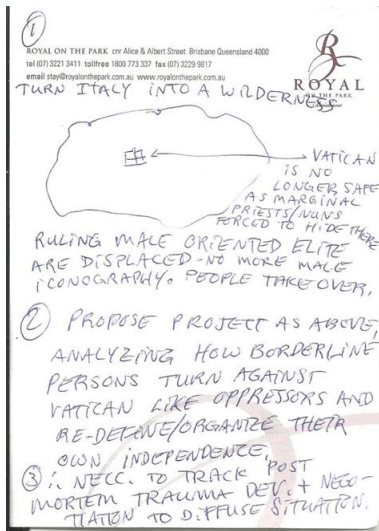 ①
ROYAL ON THE PARK cnr Alice & Albert Street Brisbane Queensland 4000
tel (07) 3221 3411 tollfree 1800 773 337 fax (07) 3229 9817
email stay@royalonthepark.com.au www.royalonthepark.com.au
R
ROYAL
ON THE PARK
TURN ITALY INTO A WILDERNESS
VATICAN
IS NO
LONGER SAFE
AS MARGINAL
PRIESTS/NUNS
FORCED TO HIDE THERE
RULING MALE ORIENTED ELITE
ARE DISPLACED - NO MORE MALE
ICONOGRAPHY. PEOPLE TAKE OVER.
② PROPOSE PROJECT AS ABOVE,
ANALYZING HOW BORDERLINE
PERSONS TURN AGAINST
VATICAN LIKE OPPRESSORS AND
RE-DEFINE/ORGANIZE THEIR
OWN INDEPENDENCE.
③ ∴ NECC. TO TRACK POST
MORTEM TRAUMA DEV. + NEGO-
TIATION TO DIFFUSE SITUATION.